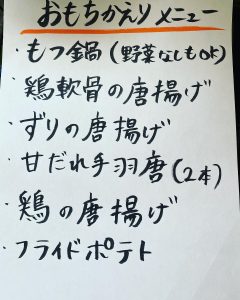 おもちかえりメニュー
・もつ鍋(野菜なしもOK)
・鶏軟骨の唐揚げ
・ずりの唐揚げ
・甘だれ手羽唐(2本)
・鶏の唐揚げ
・フライドポテト